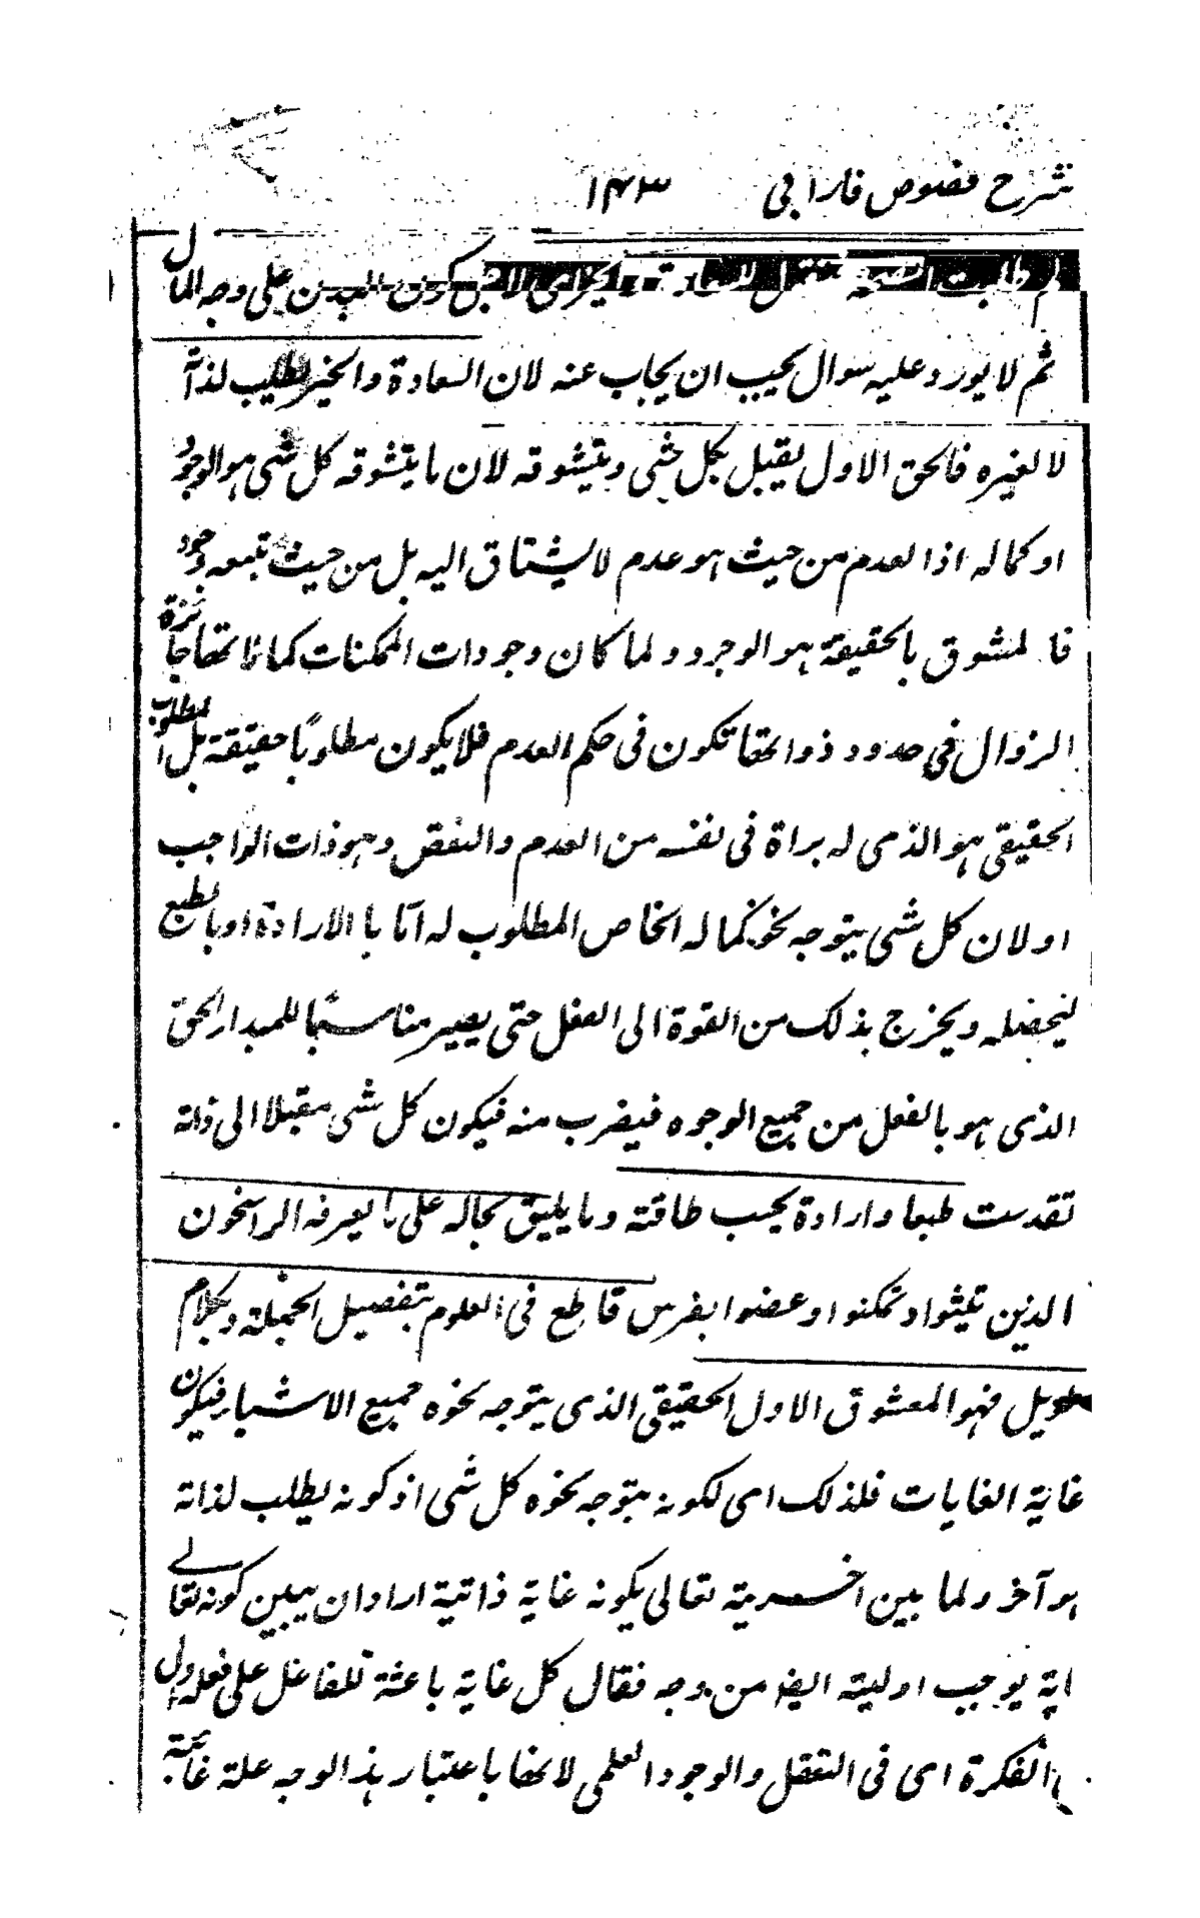 شرح فصوص فارابي ١٤٣
البدن على وجه المال
ثم لا يورد عليه سوال يجيب ان يجاب عنه لان السعادة والخير يطلب لذاته
لا لغيره فالحق الاول يقبل بكل شى ويتشوقه لان ما يتشوقه كل شى هو الوجود
او كماله اذا لعدم من حيث هو عدم لا يشتاق اليه بل من حيث يتبعه وجود
فالمشوق بالحقيقة هو الوجود ولما كان وجودات الممكنات كمالاتها جائزة
الزوال فى حدود ذواتها تكون فى حكم العدم فلا يكون مطلوبًا حقيقة بل المطلوب
الحقيقى هو الذى له براة فى نفسه من العدم والنقص وهو ذات الواجب
او لان كل شى يتوجه نحو كماله الخاص المطلوب له اما با الارادة او بالطبع
ليحصله ويخرج بذلك من القوة الى الفعل حتى يصير مناسبًا للمبدار الحق
الذى هو بالفعل من جميع الوجوه فيقرب منه فيكون كل شى مقبلا الى ذاته
تقدست طبعا وارادة بحسب طاقته وما يليق بحاله على ما يعرفه الراسخون
الذين تلبثوا وتمكنوا وعضوا بضرس قاطع فى العلوم بتفصيل الجملة وبكلام
طويل فهو المعشوق الاول الحقيقى الذى يتوجه نحوه جميع الاشيار فيكون
غاية الغايات فلذلك اى لكونه يتوجه نحوه كل شى اذ كونه يطلب لذاته
هو آخر ولما بين اخرية تعالى بكونه غاية ذاتية ارادان يبين كونه تعالے
اية يوجب اولية ايضا من وجه فقال كل غاية باعثة للفاعل على فعله اول
الفكرة اى فى التعقل والوجود العلمى لانها باعتبار هذا الوجه علة غائية